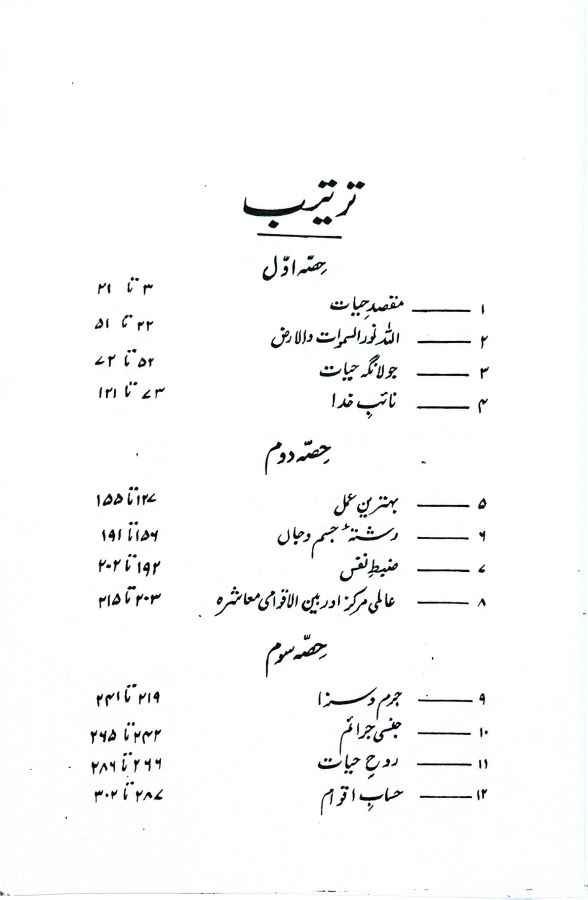 ترتیب
حصہ اوّل
۱ مقصدِ حیات ۳ تا ۲۱
۲ اللہ نور السموات والارض ۲۲ تا ۵۱
۳ جولانگہِ حیات ۵۲ تا ۷۲
۴ نائبِ خدا ۷۳ تا ۱۲۱
حصہ دوم
۵ بہترین عمل ۱۲۷ تا ۱۵۵
۶ رشتۂ جسم و جاں ۱۵۶ تا ۱۹۱
۷ ضبطِ نفس ۱۹۲ تا ۲۰۲
۸ عالمی مرکز اور بین الاقوامی معاشرہ ۲۰۳ تا ۲۱۵
حصہ سوم
۹ جرم و سزا ۲۱۹ تا ۲۴۱
۱۰ جنسی جرائم ۲۴۲ تا ۲۶۵
۱۱ روحِ حیات ۲۶۶ تا ۲۸۶
۱۲ حسابِ اقوام ۲۸۷ تا ۳۰۲